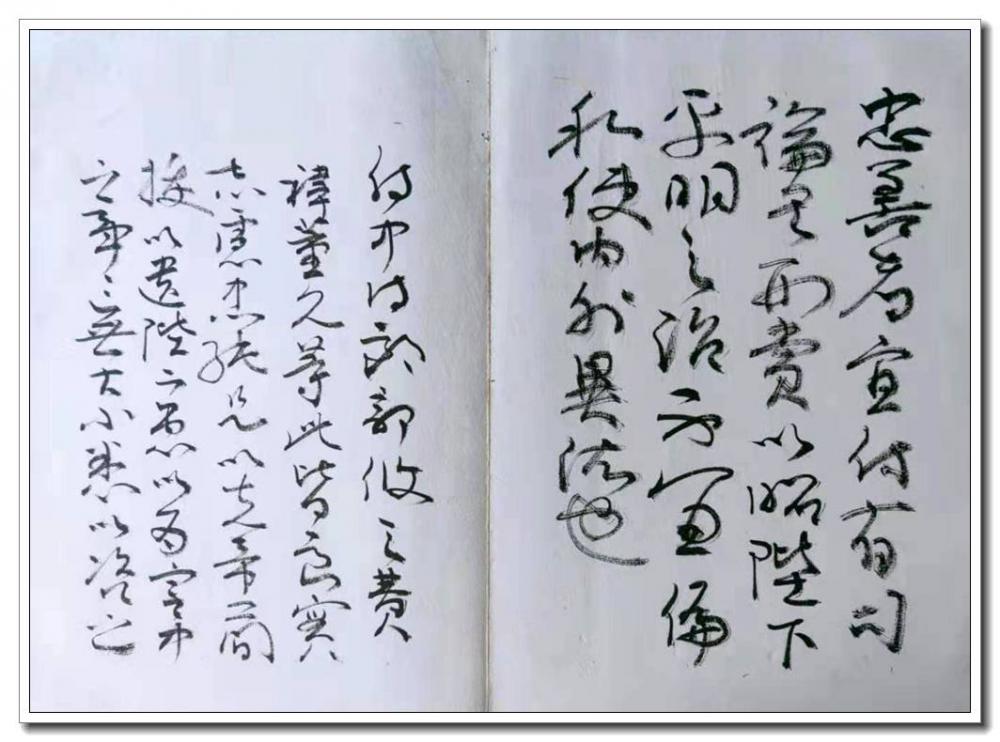 忠善者宜付有司
論其刑賞以昭陛下
平明之治不宜偏
私使内外異法也
侍中侍郎郭攸之費
禕董允等此皆良實
志慮忠純是以先帝簡
拔以遺陛下愚以為宮中
之事〻無大小悉以咨之